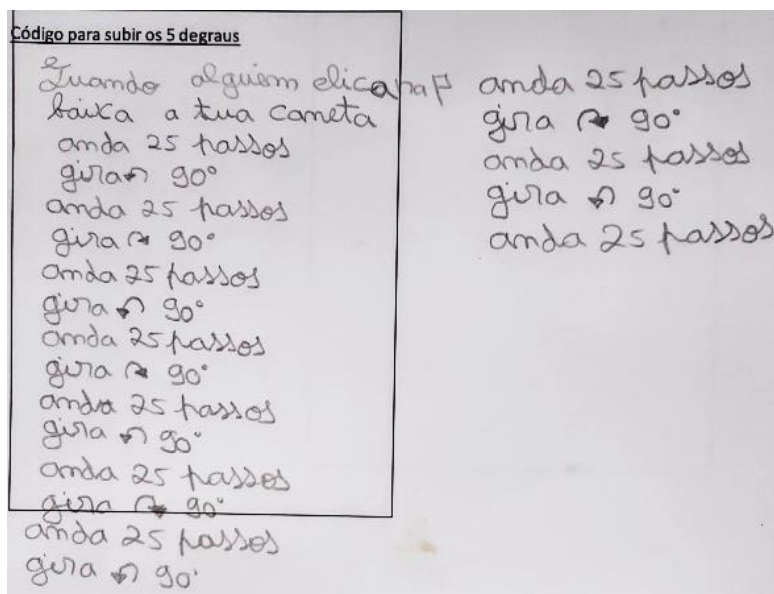 Código para subir os 5 degraus
Quando alguém clica na
baixa a tua caneta
anda 25 passos
gira ↶ 90°
anda 25 passos
gira ↷ 90°
anda 25 passos
gira ↶ 90°
anda 25 passos
gira ↷ 90°
anda 25 passos
gira ↶ 90°
anda 25 passos
gira ↷ 90°
anda 25 passos
gira ↶ 90°
anda 25 passos
gira ↷ 90°
anda 25 passos
gira ↶ 90°
anda 25 passos